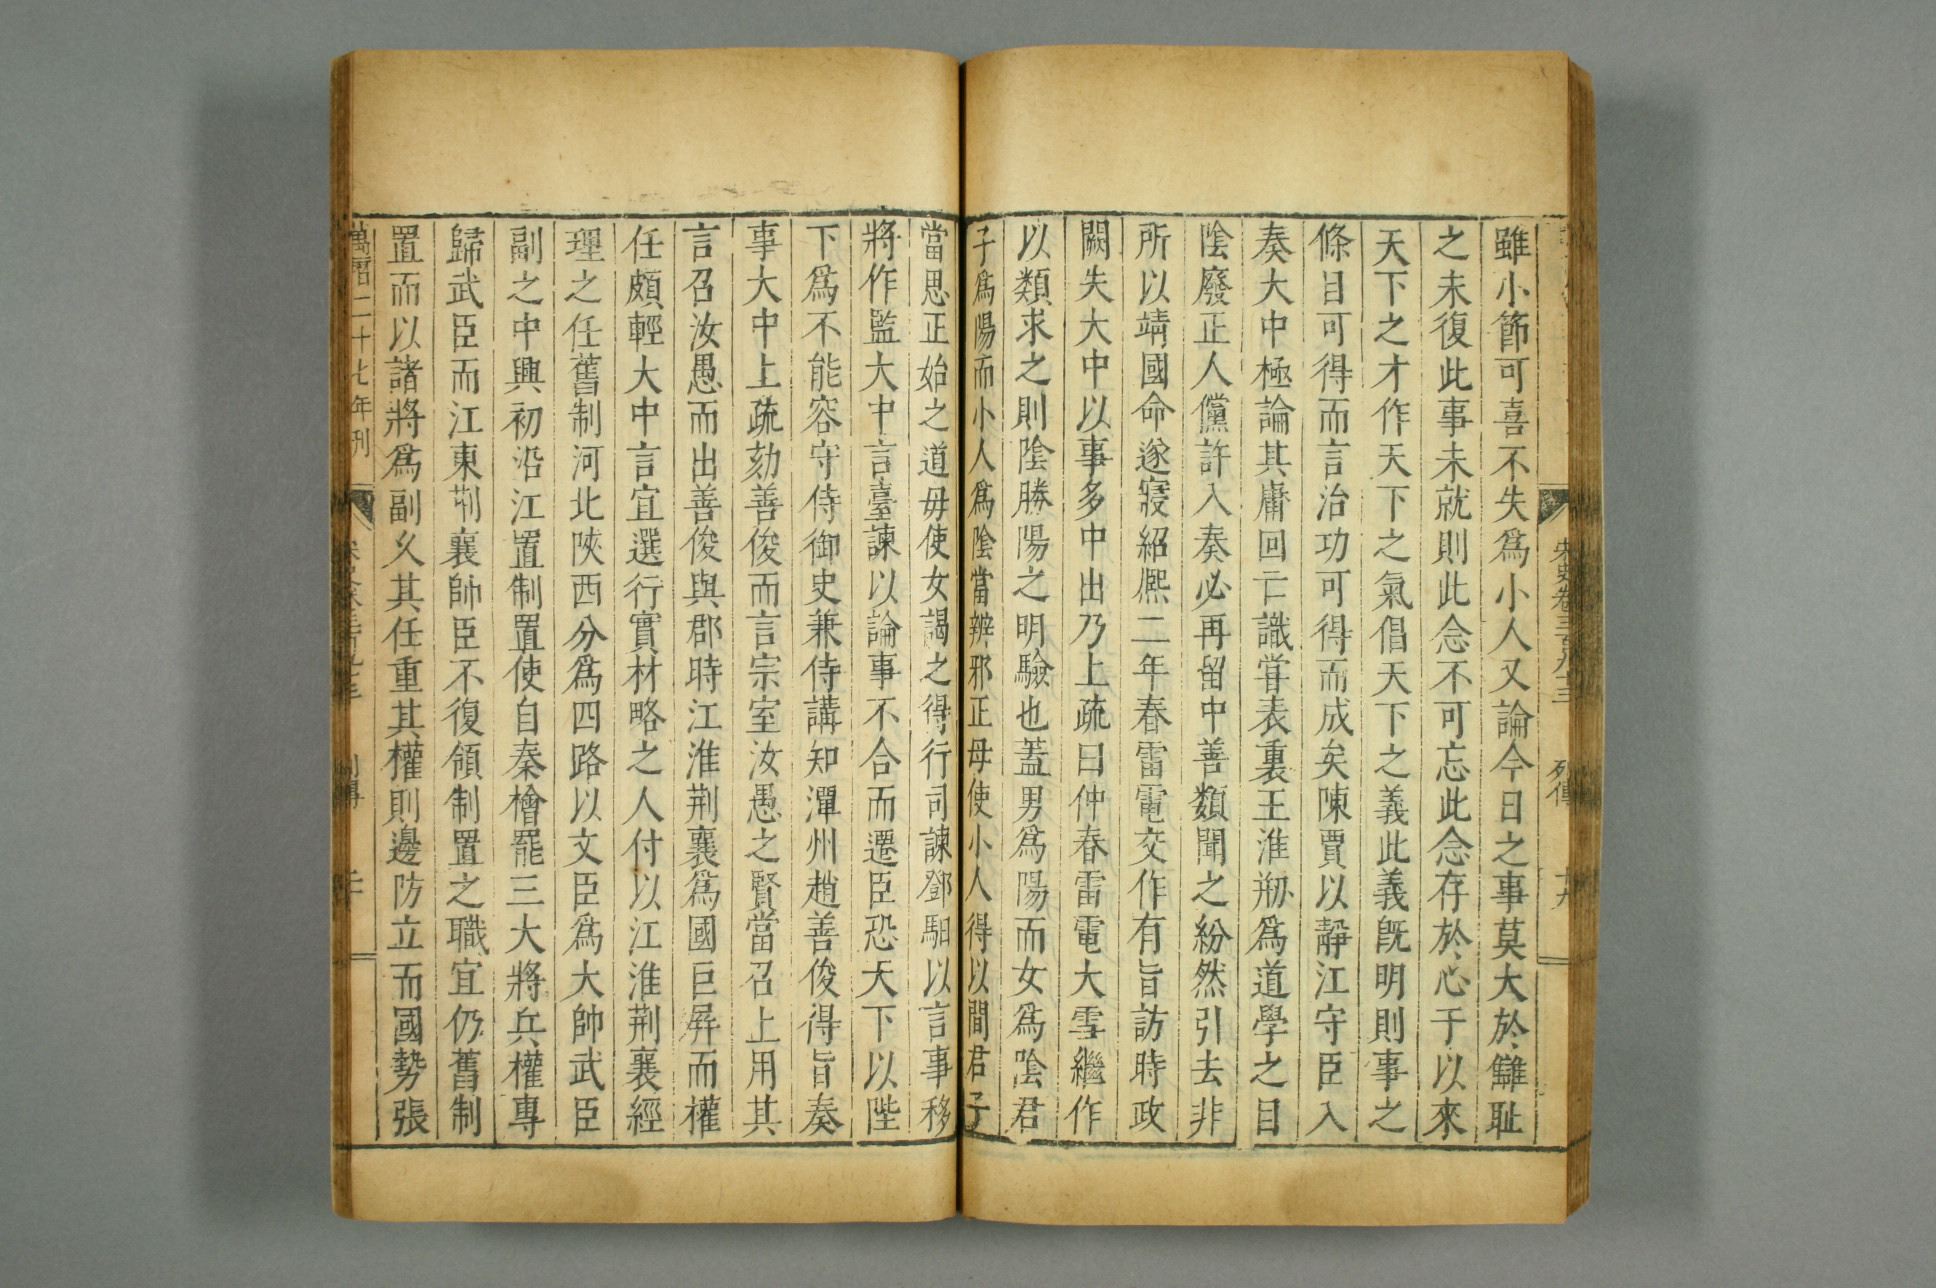 宋史卷三百九十三 列傳 十九
雖小節可喜不失爲小人又論今日之事莫大於讎耻
之未復此事未就則此念不可忘此念存於心于以來
天下之才作天下之氣倡天下之義此義旣明則事之
條目可得而言治功可得而成矣陳賈以靜江守臣入
奏大中極論其庸回亡識嘗表裏王淮刱爲道學之目
陰廢正人儻許入奏必再留中善類聞之紛然引去非
所以靖國命遂寢紹熈二年春雷電交作有旨訪時政
闕失大中以事多中出乃上疏曰仲春雷電大雪繼作
以類求之則陰勝陽之明驗也蓋男爲陽而女爲陰君
子爲陽而小人爲陰當辨邪正毋使小人得以間君子
當思正始之道毋使女謁之得行司諫鄧馹以言事移
將作監大中言臺諫以論事不合而遷臣恐天下以陛
下爲不能容守侍御史兼侍講知潭州趙善俊得旨奏
事大中上疏劾善俊而言宗室汝愚之賢當召上用其
言召汝愚而出善俊與郡時江淮荆襄爲國巨屏而權
任頗輕大中言宜選行實材略之人付以江淮荆襄經
理之任舊制河北陝西分爲四路以文臣爲大帥武臣
副之中興初沿江置制置使自秦檜罷三大將兵權專
歸武臣而江東荆襄帥臣不復領制置之職宜仍舊制
置而以諸將爲副乆其任重其權則邊防立而國勢張
萬曆二十七年刊 宋史卷三百九十三 列傳 二十